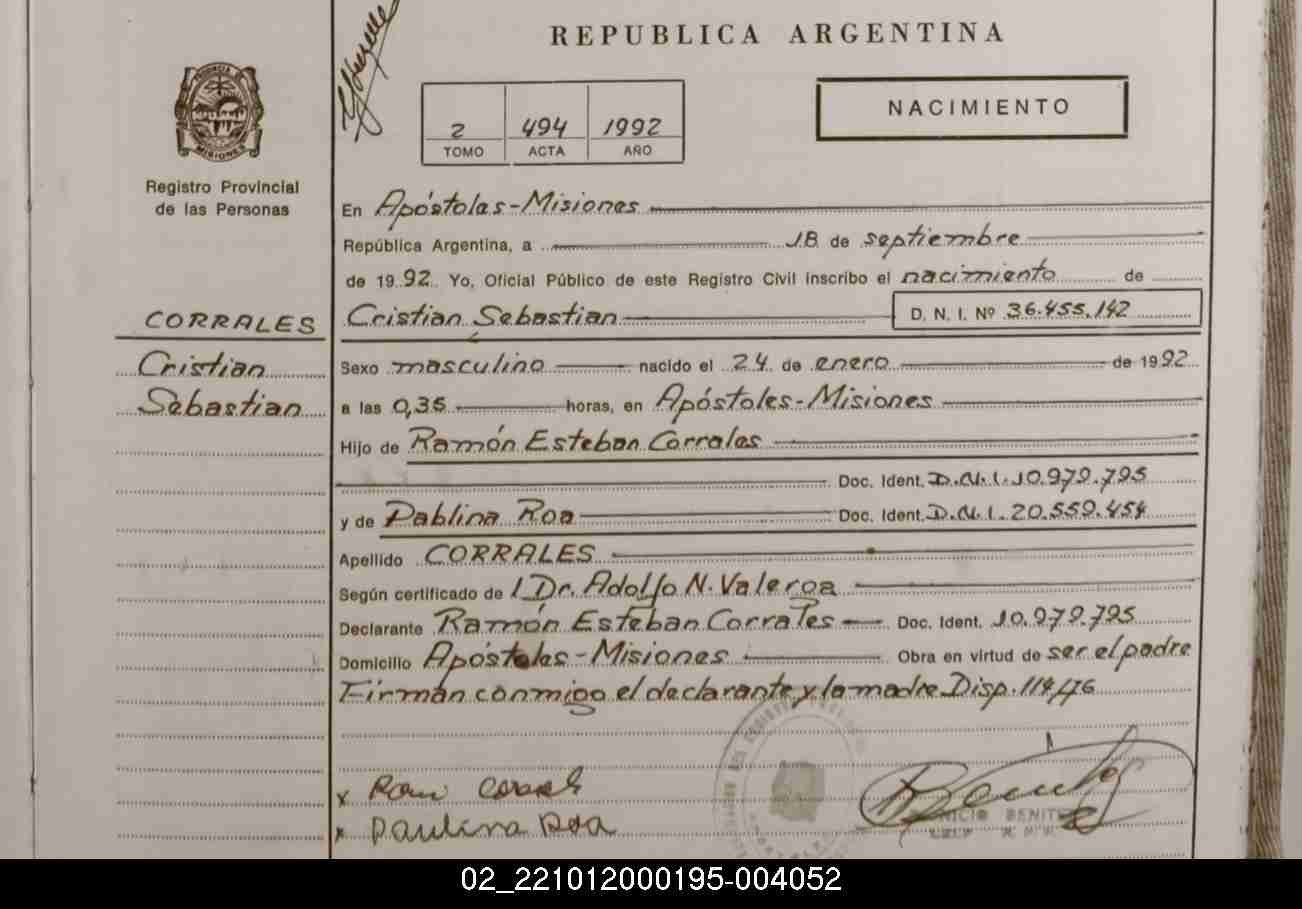 REPUBLICA ARGENTINA
PROVINCIA DE
MISIONES
Registro Provincial
de las Personas
2 494 1992
TOMO ACTA AÑO
NACIMIENTO
En Apóstoles-Misiones
República Argentina, a 18 de septiembre
de 1992 Yo, Oficial Público de este Registro Civil inscribo el nacimiento de
CORRALES
Cristian Sebastian D. N. I. Nº 36.455.142
Cristian
Sebastian
Sexo masculino nacido el 24 de enero de 1992
a las 0,35 horas, en Apóstoles-Misiones
Hijo de Ramón Esteban Corrales
Doc. Ident. D.N.I. 10.979.795
y de Pablina Roa Doc. Ident. D.N.I. 20.559.454
Apellido CORRALES
Según certificado de Dr. Adolfo N. Valeroa
Declarante Ramón Esteban Corrales Doc. Ident. 10.979.795
Domicilio Apóstoles-Misiones Obra en virtud de ser el padre
Firman conmigo el declarante y la madre Disp. 114/76
x
x Paulina Roa
BENITE
02_221012000195-004052